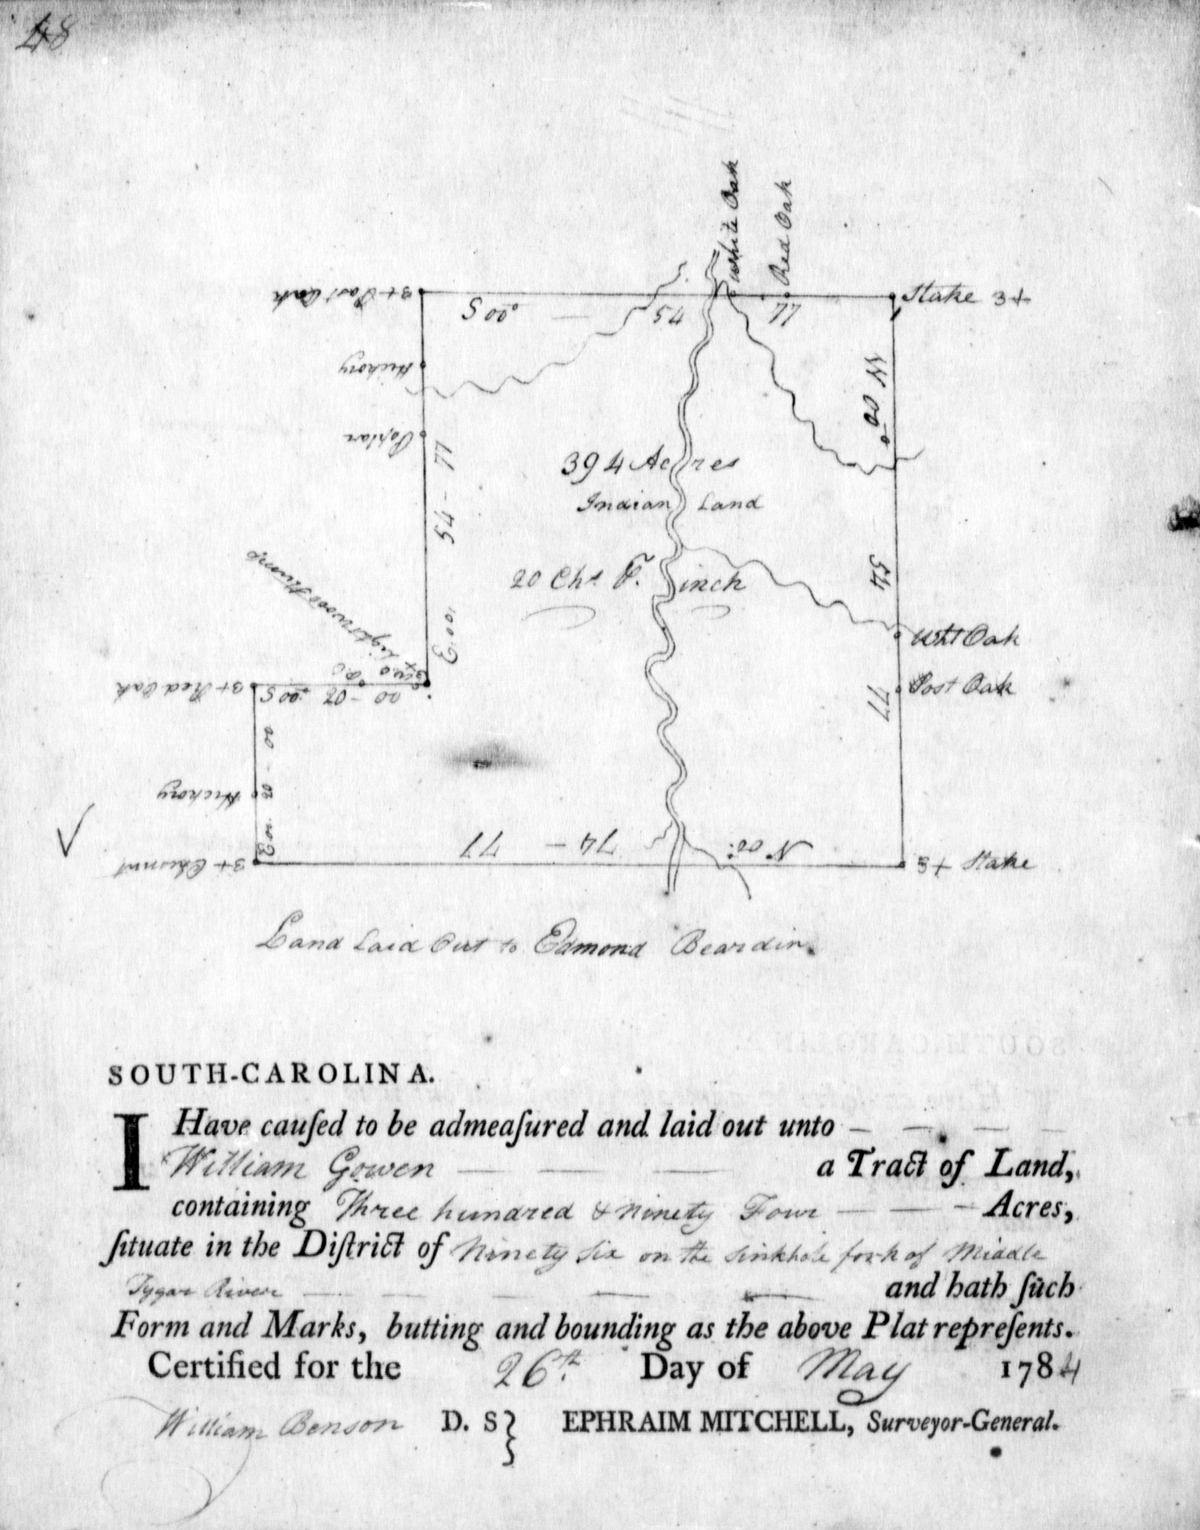 48
White Oak
Red Oak
3+ Post Oak
Stake 3+
S 00°
54
77
Hickory
W 00°
Poplar
77
54
E 00
394 Acres
Indian Land
20 Chs P. Inch
54
77
Lightwood Stump
3+ Red Oak
S 00° 20 - 00
Wht Oak
Post Oak
20
Hickory
3+ Chesnut
N 00° 74 - 77
3+ Stake
Land Laid Out to Edmond Beardin
SOUTH-CAROLINA.
I Have cauſed to be admeaſured and laid out unto
William Gowen a Tract of Land,
containing Three hundred & ninety Four Acres,
ſituate in the Diſtrict of Ninety Six on the Sinkhole fork of Middle
Tygar River and hath ſuch
Form and Marks, butting and bounding as the above Plat repreſents.
Certified for the 26th Day of May 1784
William Benson D. S } EPHRAIM MITCHELL, Surveyor-General.